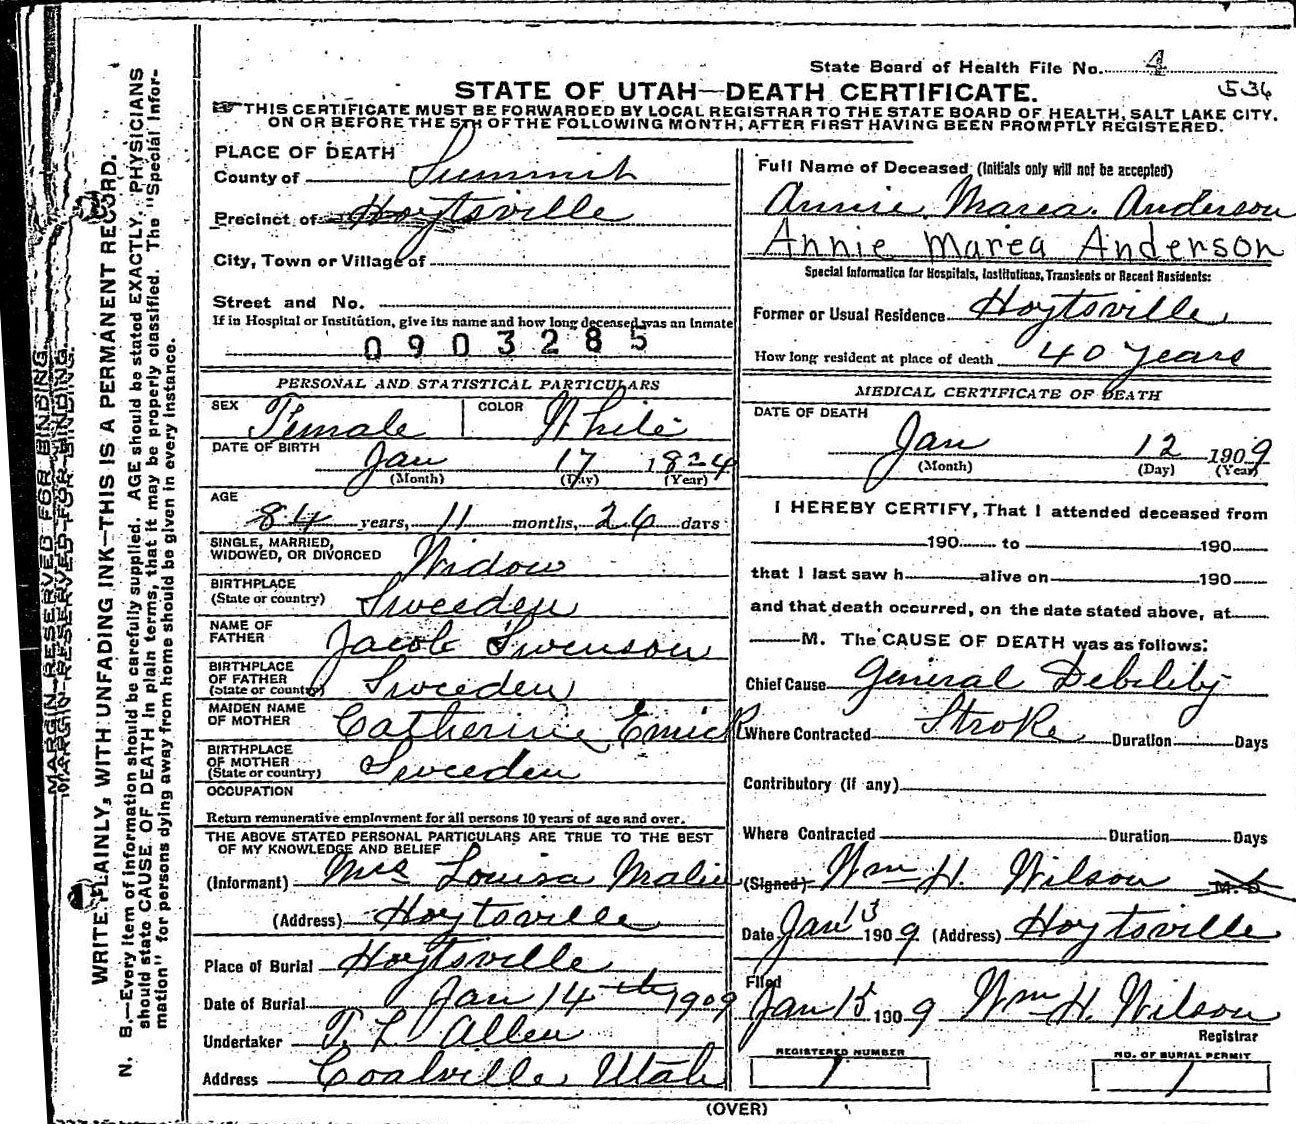 State Board of Health File No. 4
STATE OF UTAH—DEATH CERTIFICATE. 534
THIS CERTIFICATE MUST BE FORWARDED BY LOCAL REGISTRAR TO THE STATE BOARD OF HEALTH, SALT LAKE CITY.
ON OR BEFORE THE 5TH OF THE FOLLOWING MONTH, AFTER FIRST HAVING BEEN PROMPTLY REGISTERED.
PLACE OF DEATH
County of Summit
Precinct of Hoytsville
City, Town or Village of
Street and No.
If in Hospital or Institution, give its name and how long deceased was an Inmate
0903285
PERSONAL AND STATISTICAL PARTICULARS
SEX Female COLOR White
DATE OF BIRTH
Jan 17 1824
(Month) (Day) (Year)
AGE
84 years, 11 months, 26 days
SINGLE, MARRIED,
WIDOWED, OR DIVORCED Widow
BIRTHPLACE
(State or country) Sweeden
NAME OF
FATHER Jacob Swenson
BIRTHPLACE
OF FATHER
(State or country) Sweeden
MAIDEN NAME
OF MOTHER Catherine Emick
BIRTHPLACE
OF MOTHER
(State or country) Sweeden
OCCUPATION
Return remunerative employment for all persons 10 years of age and over.
THE ABOVE STATED PERSONAL PARTICULARS ARE TRUE TO THE BEST
OF MY KNOWLEDGE AND BELIEF
(Informant) Mrs Louisa Malin
(Address) Hoytsville
Place of Burial Hoytsville
Date of Burial Jan 14th 1909
Undertaker T. L. Allen
Address Coalville Utah
Full Name of Deceased (Initials only will not be accepted)
Annie Marea Anderson
Annie Marea Anderson
Special Information for Hospitals, Institutions, Transients or Recent Residents:
Former or Usual Residence Hoytsville
How long resident at place of death 40 years
MEDICAL CERTIFICATE OF DEATH
DATE OF DEATH
Jan 12 1909
(Month) (Day) (Year)
I HEREBY CERTIFY, That I attended deceased from
190 to 190
that I last saw h alive on 190
and that death occurred, on the date stated above, at
M. The CAUSE OF DEATH was as follows:
Chief Cause General Debility
Where Contracted Stroke Duration Days
Contributory (if any)
Where Contracted Duration Days
(Signed) Wm H. Wilson M. D.
Date Jan 13 1909 (Address) Hoytsville
Filed
Jan 15 1909 Wm H. Wilson
Registrar
REGISTERED NUMBER NO. OF BURIAL PERMIT
1 1
(OVER)
MARGIN RESERVED FOR BINDING.
MARGIN RESERVED FOR BINDING.
WRITE PLAINLY, WITH UNFADING INK—THIS IS A PERMANENT RECORD.
N. B.—Every item of information should be carefully supplied. AGE should be stated EXACTLY. PHYSICIANS
should state CAUSE OF DEATH in plain terms, that it may be properly classified. The "Special Infor-
mation" for persons dying away from home should be given in every instance.